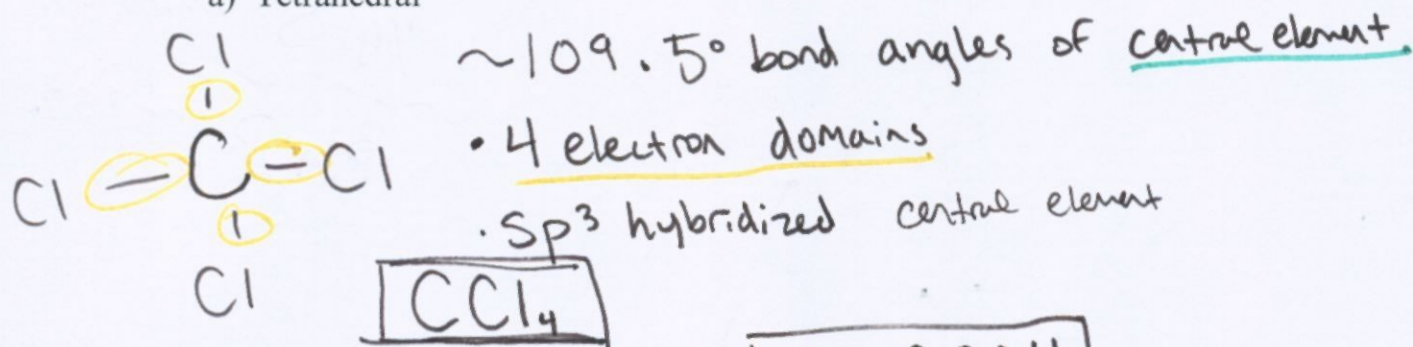 a) Tetrahedral
Cl
~109.5° bond angles of central element.
Cl - C - Cl
• 4 electron domains
• Sp³ hybridized central element
Cl
CCl₄